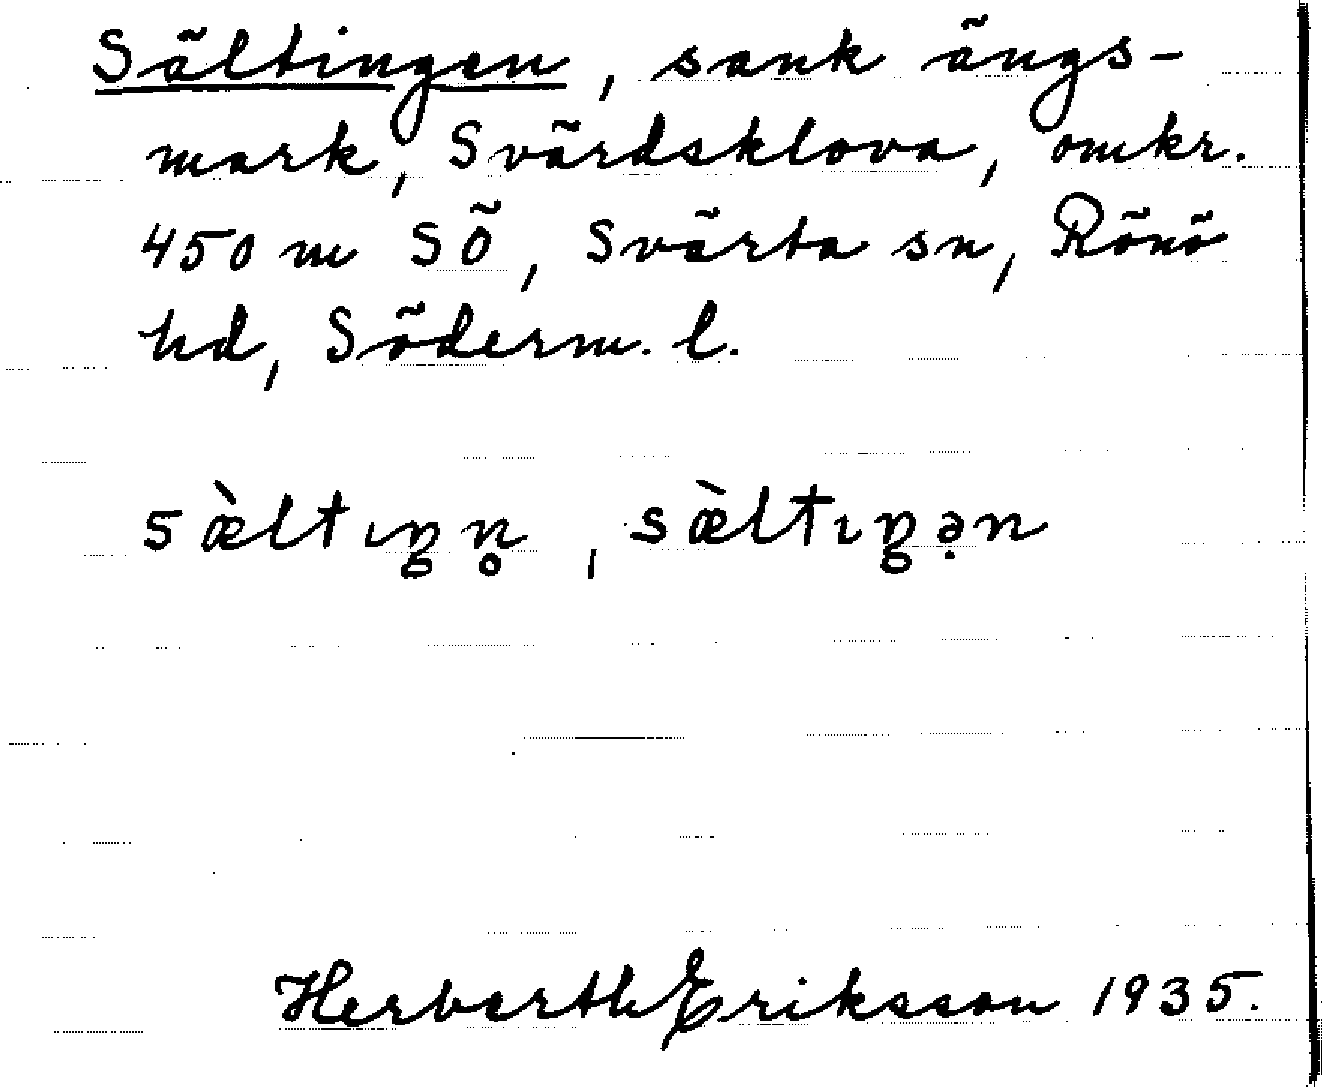 Sältingen, sank ängs-
mark, Svärdsklova, omkr.
450 m SÖ, Svärta sn, Rönö
hd, Söderm. l.
sæ̀ltıŋn̥, sæ̀ltıŋə̣n
Herberth Eriksson 1935.